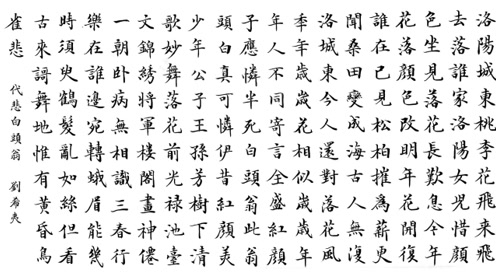 洛陽城東桃李花飛來飛
去落誰家洛陽女兒惜顏
色坐見落花長歎息今年
花落顏色改明年花開復
誰在已見松柏摧爲薪更
聞桑田變成海古人無復
洛城東今人還對落花風
秊年歲歲花相似歲歲年
年人不同寄言全盛紅顏
子應憐半死白頭翁此翁
頭白真可憐伊昔紅顏美
少年公子王孫芳樹下清
歌妙舞落花前光祿池臺
文錦綉將軍樓閣畫神僊
一朝卧病無相識三春行
樂在誰邊宛轉蛾眉能幾
時須臾鶴髮亂如絲但看
古來謌舞地惟有黃昏鳥
雀悲 代悲白頭翁 劉希夷